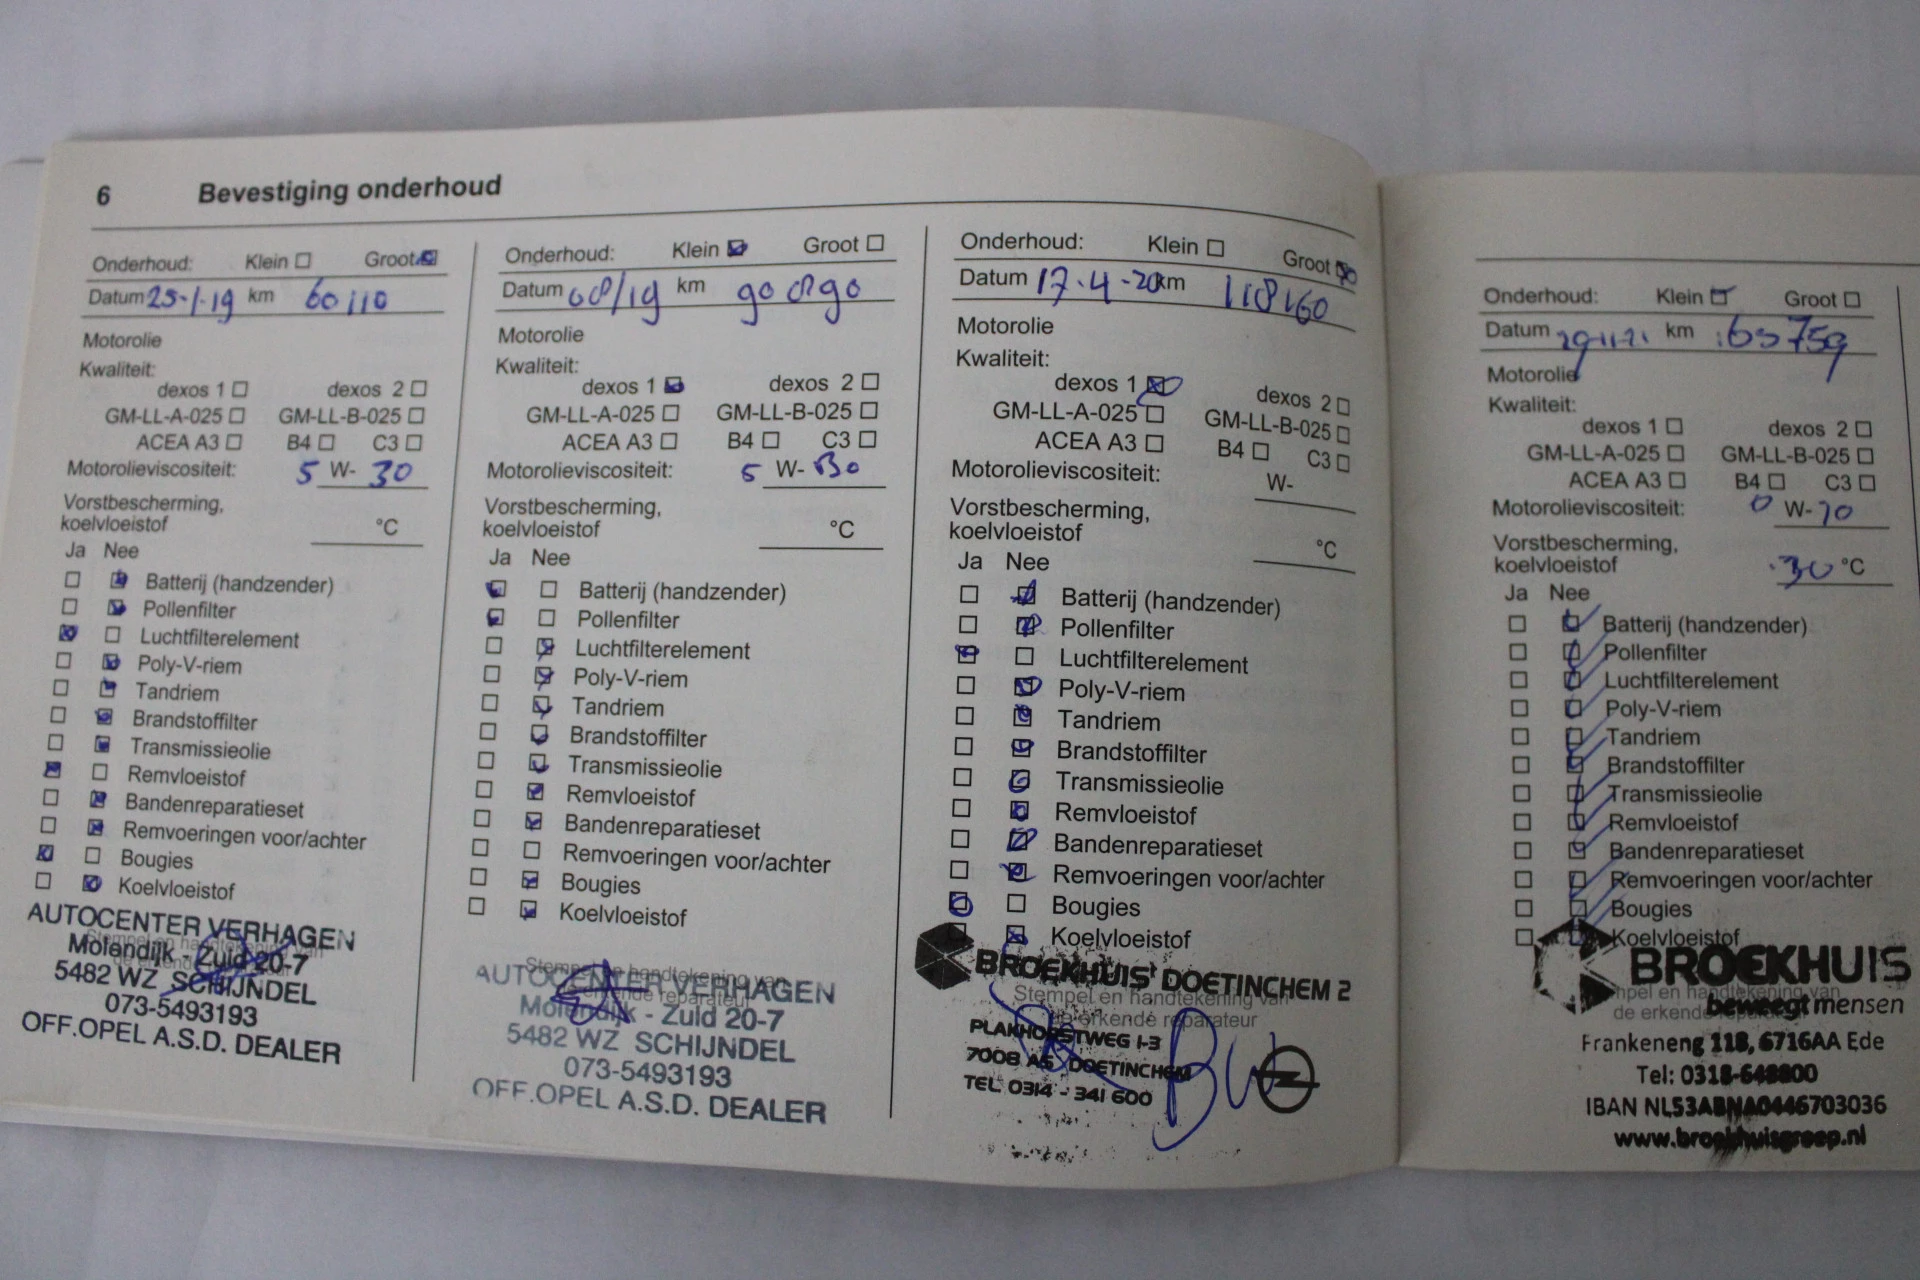 6 Bevestiging onderhoud
Onderhoud: Klein Groot
Datum 25-1-19 km 60110
Motorolie
Kwaliteit:
dexos 1 dexos 2
GM-LL-A-025 GM-LL-B-025
ACEA A3 B4 C3
Motorolieviscositeit: 5 W- 30
Vorstbescherming,
koelvloeistof °C
Ja Nee
Batterij (handzender)
Pollenfilter
Luchtfilterelement
Poly-V-riem
Tandriem
Brandstoffilter
Transmissieolie
Remvloeistof
Bandenreparatieset
Remvoeringen voor/achter
Bougies
Koelvloeistof
AUTOCENTER VERHAGEN
Stempel en handtekening van
Molendijk - Zuid 20-7
de erkende
5482 WZ SCHIJNDEL
073-5493193
OFF.OPEL A.S.D. DEALER
Onderhoud: Klein Groot
Datum 08/19 km 90890
Motorolie
Kwaliteit:
dexos 1 dexos 2
GM-LL-A-025 GM-LL-B-025
ACEA A3 B4 C3
Motorolieviscositeit: 5 W- 30
Vorstbescherming,
koelvloeistof °C
Ja Nee
Batterij (handzender)
Pollenfilter
Luchtfilterelement
Poly-V-riem
Tandriem
Brandstoffilter
Transmissieolie
Remvloeistof
Bandenreparatieset
Remvoeringen voor/achter
Bougies
Koelvloeistof
Stempel en handtekening van
AUTOCENTER VERHAGEN
erkende reparateur
Molendijk - Zuid 20-7
5482 WZ SCHIJNDEL
073-5493193
OFF.OPEL A.S.D. DEALER
Onderhoud: Klein Groot
Datum 17-4-20 km 118160
Motorolie
Kwaliteit:
dexos 1 dexos 2
GM-LL-A-025 GM-LL-B-025
ACEA A3 B4 C3
Motorolieviscositeit: W-
Vorstbescherming,
koelvloeistof °C
Ja Nee
Batterij (handzender)
Pollenfilter
Luchtfilterelement
Poly-V-riem
Tandriem
Brandstoffilter
Transmissieolie
Remvloeistof
Bandenreparatieset
Remvoeringen voor/achter
Bougies
Koelvloeistof
BROEKHUIS DOETINCHEM 2
Stempel en handtekening van
de erkende reparateur
PLAKHORSTWEG 1-3
7008 AS DOETINCHEM
TEL. 0314 - 341 600
Onderhoud: Klein Groot
Datum km
Motorolie
Kwaliteit:
dexos 1 dexos 2
GM-LL-A-025 GM-LL-B-025
ACEA A3 B4 C3
Motorolieviscositeit: 0 W-
Vorstbescherming,
koelvloeistof -30 °C
Ja Nee
Batterij (handzender)
Pollenfilter
Luchtfilterelement
Poly-V-riem
Tandriem
Brandstoffilter
Transmissieolie
Remvloeistof
Bandenreparatieset
Remvoeringen voor/achter
Bougies
Koelvloeistof
BROEKHUIS
en handtekening van
beweegt mensen
de erkende
Frankeneng 118, 6716AA Ede
Tel: 0318-648800
IBAN NL53ABNA0446703036
www.broekhuisgroep.nl